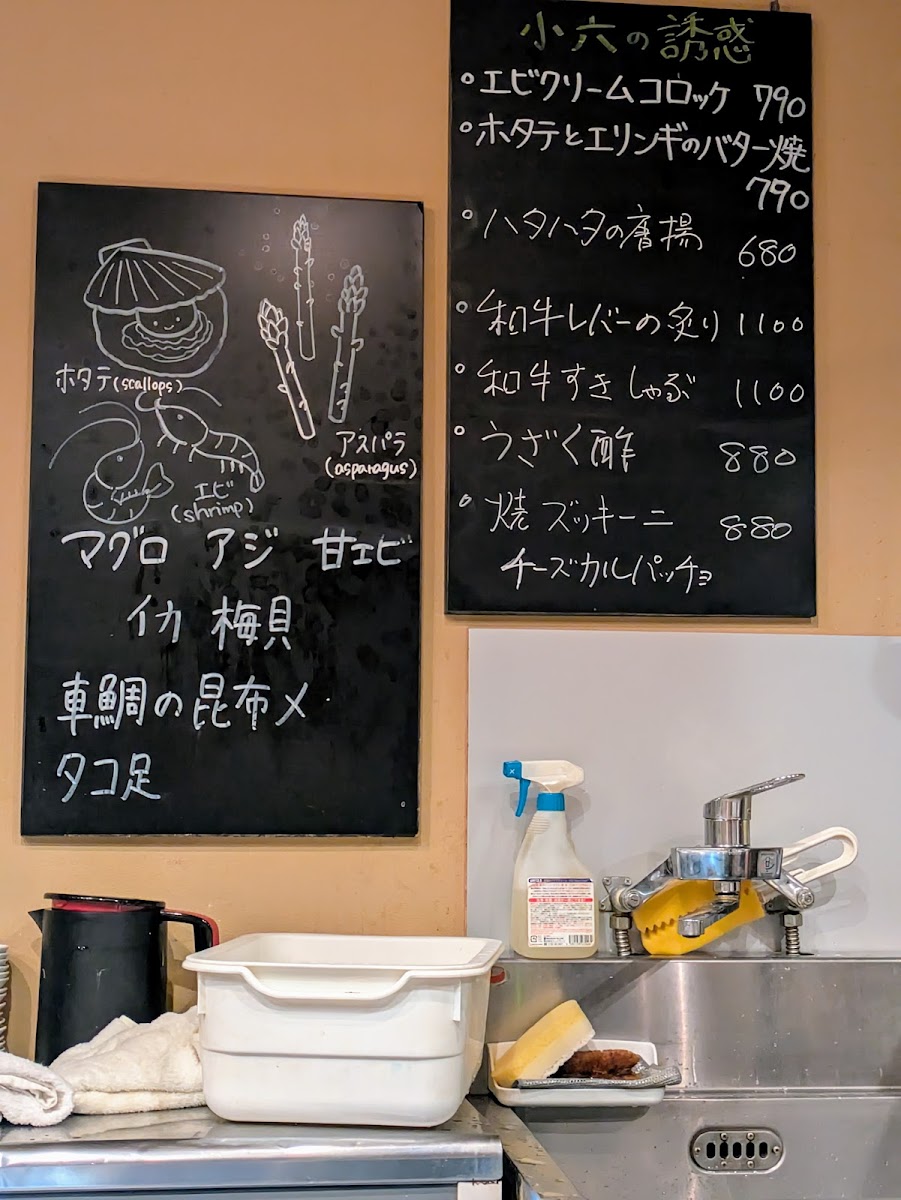 ホタテ(scallops)
アスパラ
(asparagus)
エビ
(shrimp)
マグロ アジ 甘エビ
イカ 梅貝
車鯛の昆布〆
タコ足
小六の誘惑
。エビクリームコロッケ 790
。ホタテとエリンギのバター焼
790
。ハタハタの唐揚 680
。和牛レバーの炙り 1100
。和牛すきしゃぶ 1100
。うざく酢 880
。焼ズッキーニ 880
チーズカルパッチョ